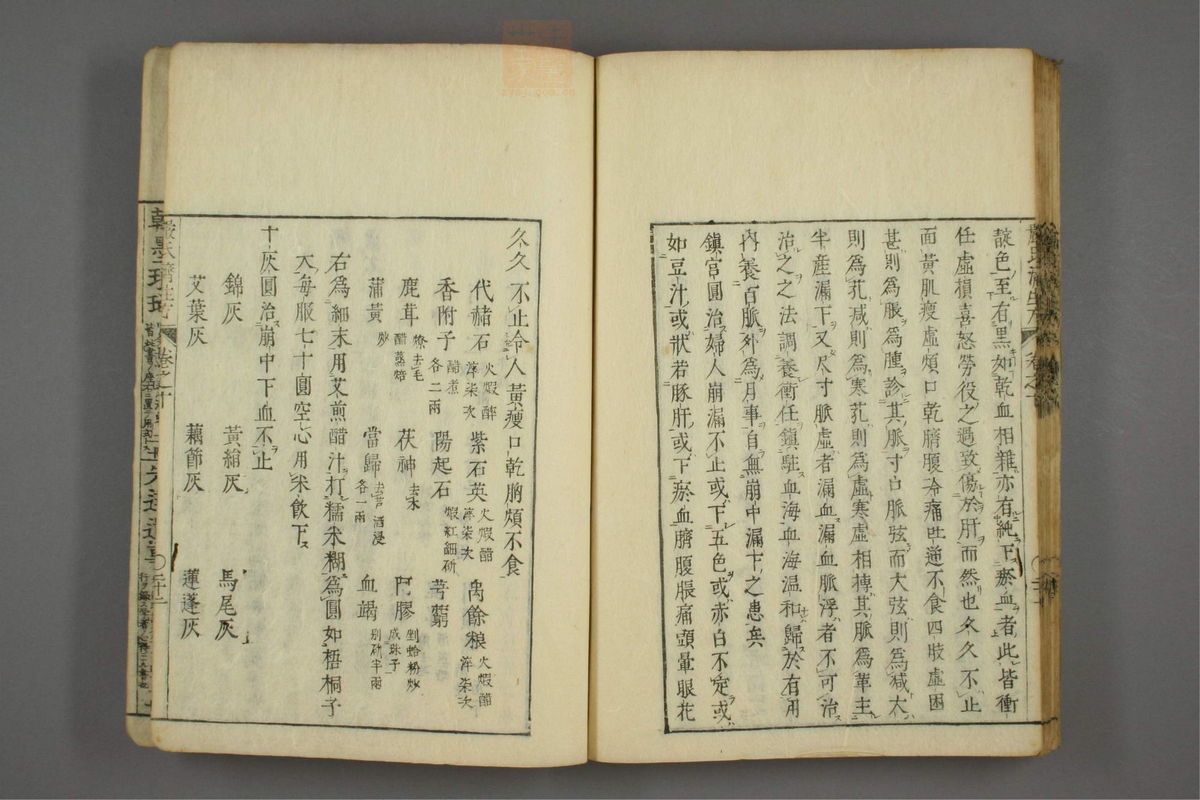 靛色至有黑如乾血相雜亦有純下瘀血者此皆衝
任虛損喜怒勞役之過致傷於肝而然也久久不止
面黃肌瘦虛煩口乾臍腹冷痛吐逆不食四肢虛困
甚則為脹為腫診其脈寸口脈弦而大弦則為減大
則為芤減則為寒芤則為虛寒虛相摶其脈為革主
半產漏下又尺寸脈虛者漏血漏血脈浮者不可治
治之之法調養衝任鎮駐血海血海温和歸於有用
內養百脈外為月事自無崩中漏下之患矣
鎮宮圓治婦人崩漏不止或下五色或赤白不定或
如豆汁或狀若豚肝或下瘀血臍腹脹痛頭暈眼花
久久不止令人黃瘦口乾胸煩不食
代赭石火煅醉淬柒次 紫石英火煅醋淬柒次 禹餘粮火煅醋淬柒次
香附子醋煮各二兩 陽起石煅紅細研 芎藭
鹿茸燎去毛醋蒸焙 茯神去木 阿膠剉蛤粉炒成珠子
蒲黃炒 當歸去芦酒浸各一兩 血竭别研半兩
右為細末用艾煎醋汁打糯米糊為圓如梧桐子
大每服七十圓空心用米飲下
十灰圓治崩中下血不止
錦灰 黃絹灰 馬尾灰
艾葉灰 藕節灰 蓮蓬灰